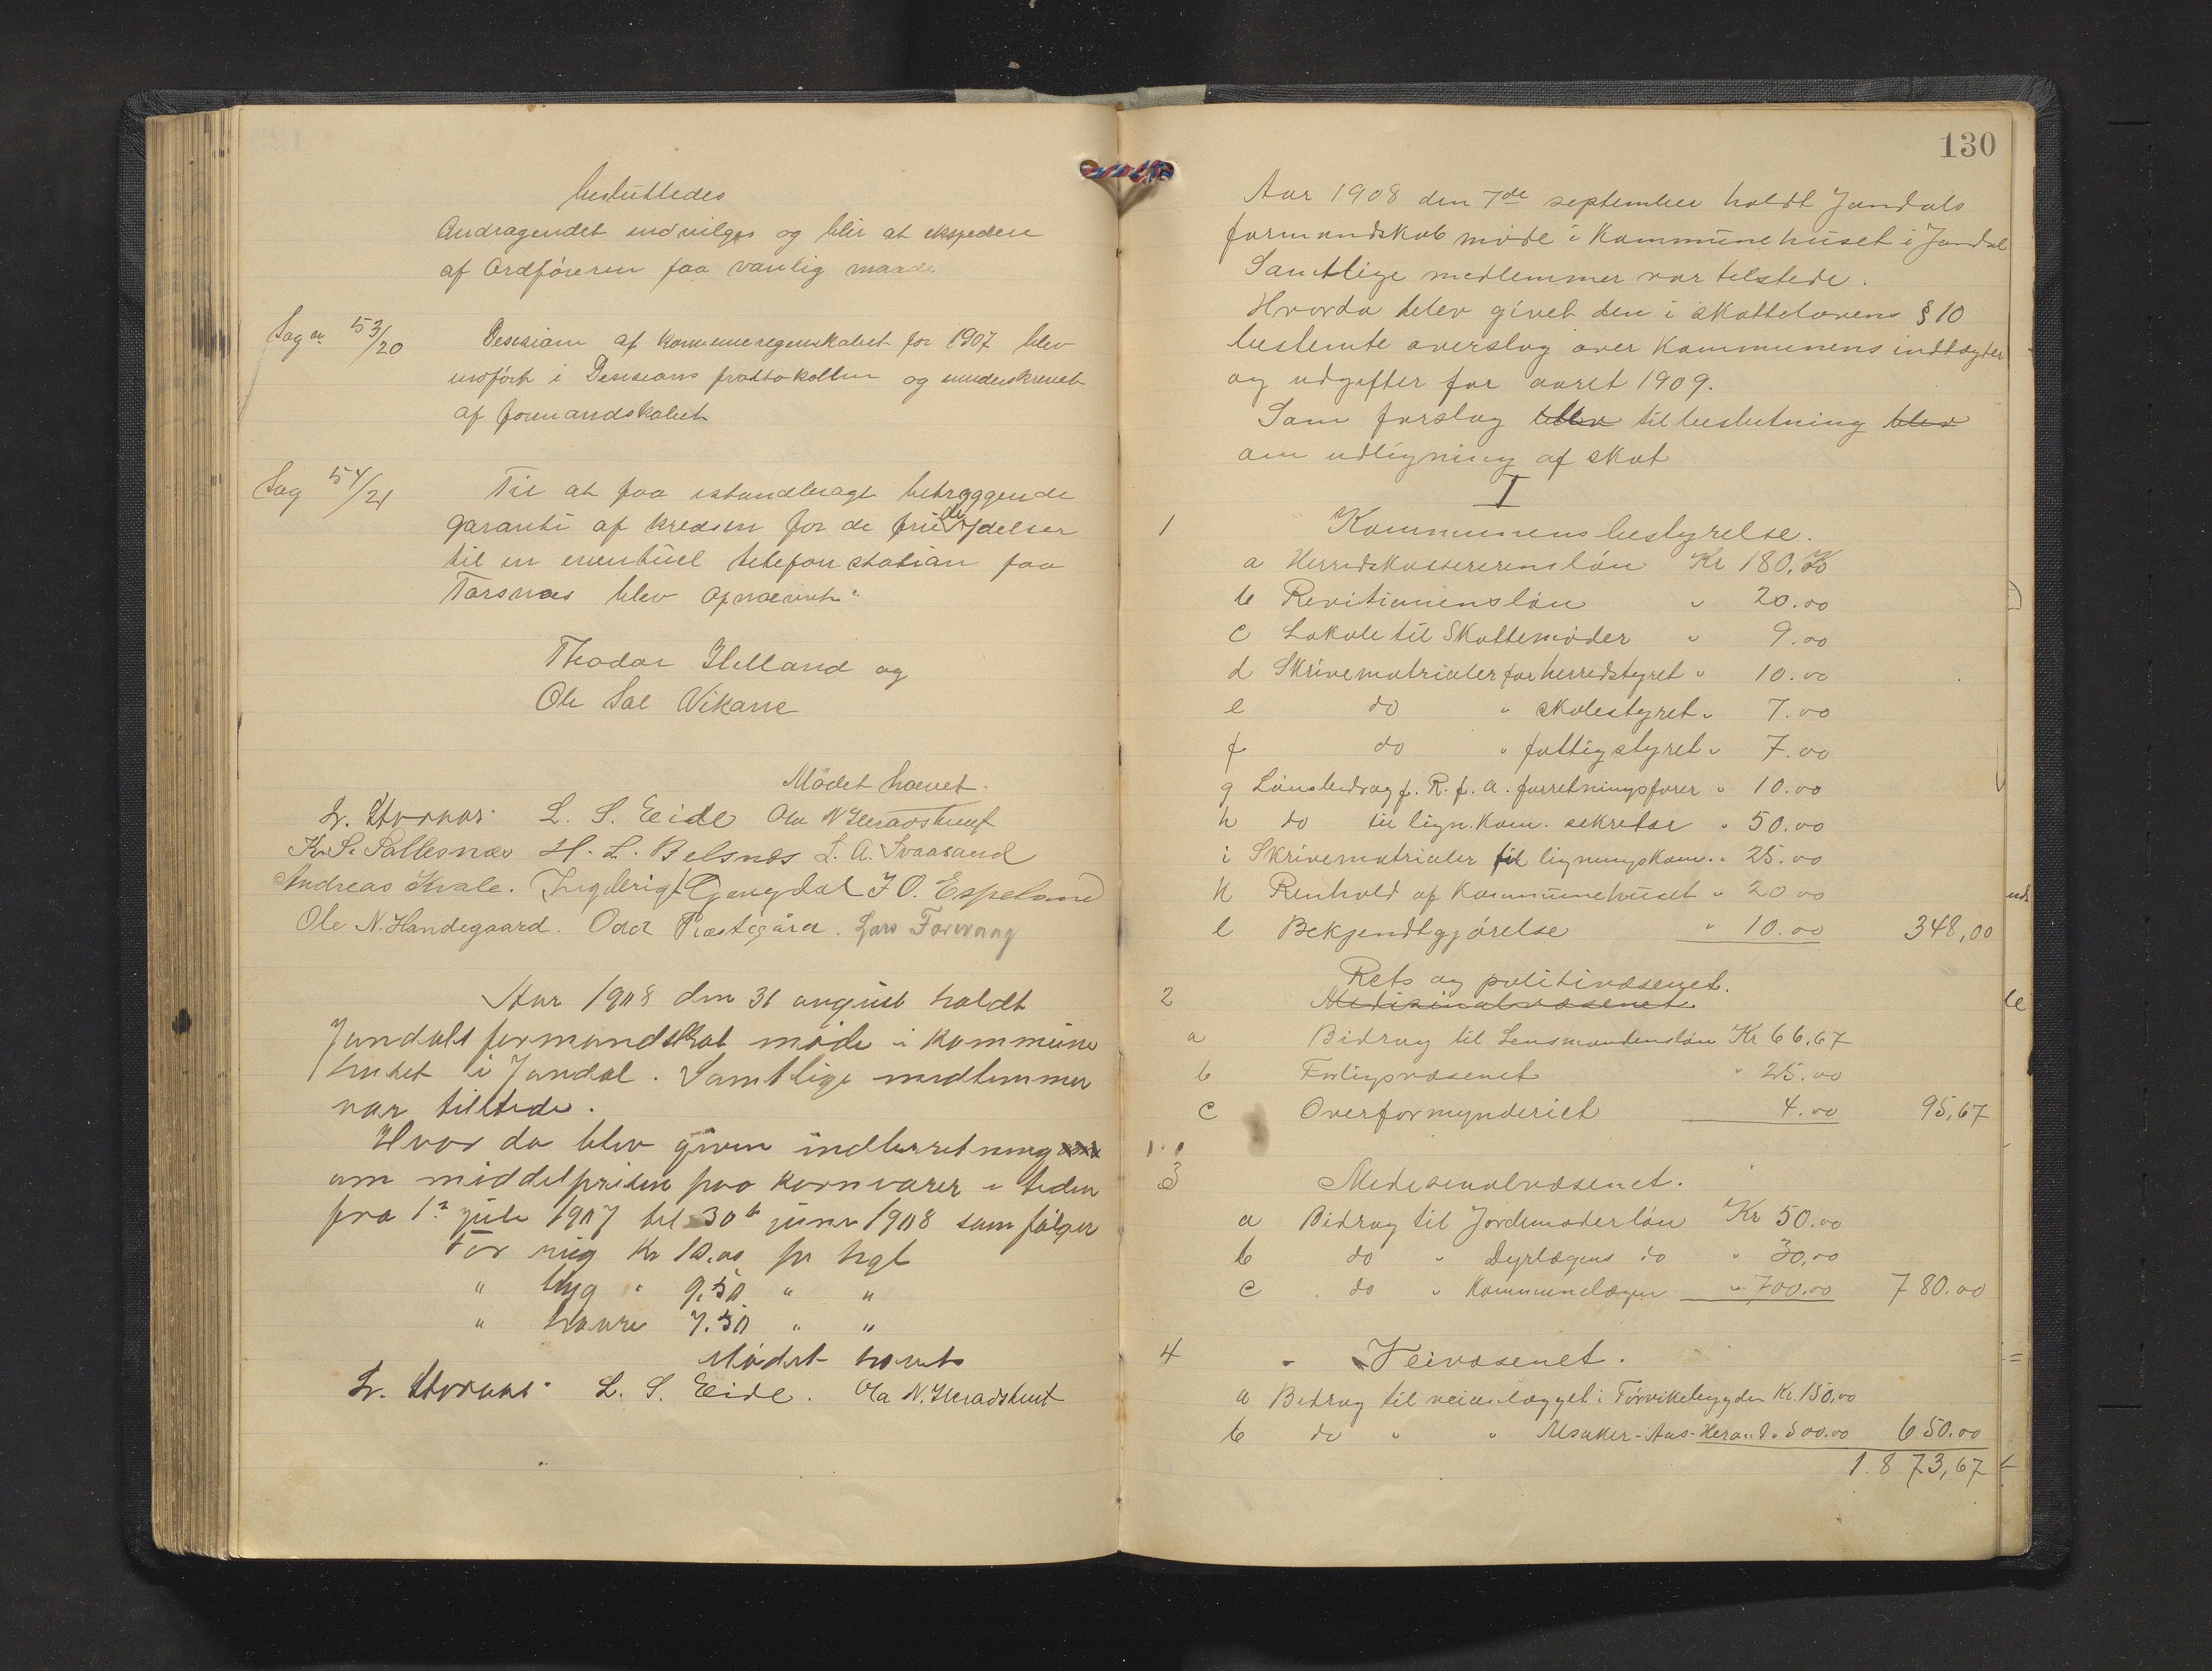 besluttedes
Andragendet indvilges og blir at ekspedere
af Ordføreren paa vanlig maade
Sag n. 53/20 Desision af kommuneregnskabet for 1907 blev
indført i Desisions prottokollen og underskrevet
af formandskabet
Sag 54/21 Til at faa istandbragt betryggende
garanti af kredsen for de frie ydelser
til en eventuel telefonstation paa
Tørsnes blev opnævnt:
Theodor Helland og
Ole Sal Vikane
Mødet hævet.
L. S. Eide Ola N Heradstveit
K. S. Sallesnæs H. L. Belsnes L. A. Svaasand
Andreas Kvale. Ingebrigt Gjengdal J O. Espeland
Ole N. Handegaard. Odd Præstegård. Lars
Aar 1908 den 31 august holdt
Jondals formandskab møde i kommune
huset i Jondal. Samtlige medlemmer
var tilstede.
Hvor da blev given indberetning
om middelprisen paa kornvarer i tiden
fra 1ste juli 1907 til 30te juni 1908 som følger
For rug Kr 10.00 pr hgl
" byg " 9.50 " "
" havre 7.50 " "
Mødet hævet
L. S. Eide. Ola N. Heradstveit
130
Aar 1908 den 7de september holdt Jondals
formandskab møde i Kommunehuset i Jondal
Samtlige medlemmer var tilstede.
Hvorda blev givet den i skattelovens § 10
bestemte overslag over Kommunens indtægter
og udgifter for aaret 1909.
Som forslag blev til beslutning blev
om udligning af skat
I
1 Kommunens bestyrelse.
a Herredskassererensløn Kr 180.00
b Revitionensløn " 20.00
c Lokale til Skattemøder " 9.00
d Skrivematrialer for herredstyret " 10.00
e do " skolestyret " 7.00
f do " fattigstyret " 7.00
g Lønsbidrag f. R. f. A. forretningsfører " 10.00
h do til lign. kom. sekretær " 50.00
i Skrivematrialer til ligningskom. " 25.00
k Renhold af Kommunehuset " 20.00
l Bekjendtgjørelse " 10.00 348,00
Rets og politivæsenet.
2 Medisinalvæsenet
a Bidrag til Lensmandensløn Kr 66,67
b Forligsvæsenet " 25.00
c Overformynderiet 4.00 95,67
3 Medesinalvæsenet.
a Bidrag til Jordemoderløn Kr 50.00
b do " Dyrlægens do " 30,00
c do " Kommunelægen " 700.00 780.00
4 Veivæsenet.
a Bidrag til veianlægget i Tørvikebygden Kr. 150,00
b do " " Alsaker-Aas-Herand " 500.00 650.00
1.873,67